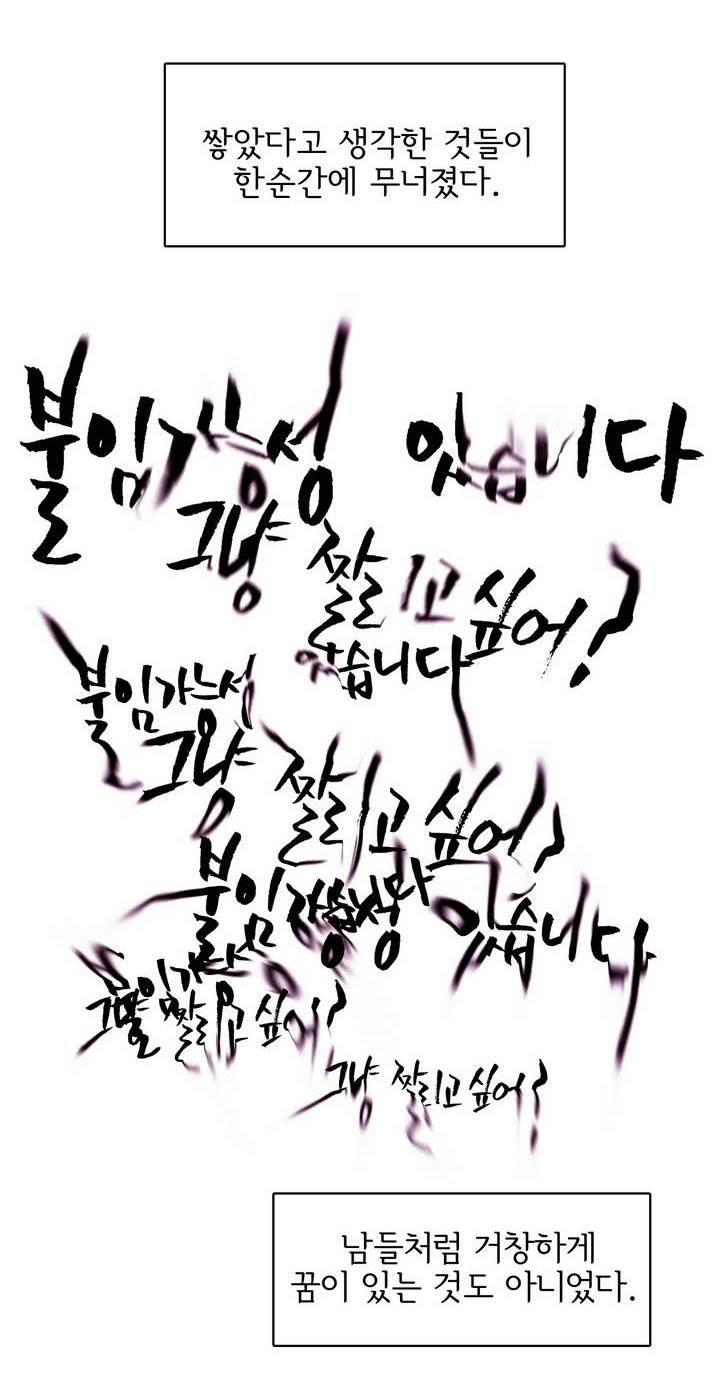 쌓았다고 생각한 것들이
한순간에 무너졌다.
불임가능성 있습니다
그냥 짤리고싶어?
불임가능성 있습니다
그냥 짤리고 싶어?
불임가능성 있습니다
불임가
그냥 짤리고 싶어?
그냥 짤리고 싶어?
남들처럼 거창하게
꿈이 있는 것도 아니었다.